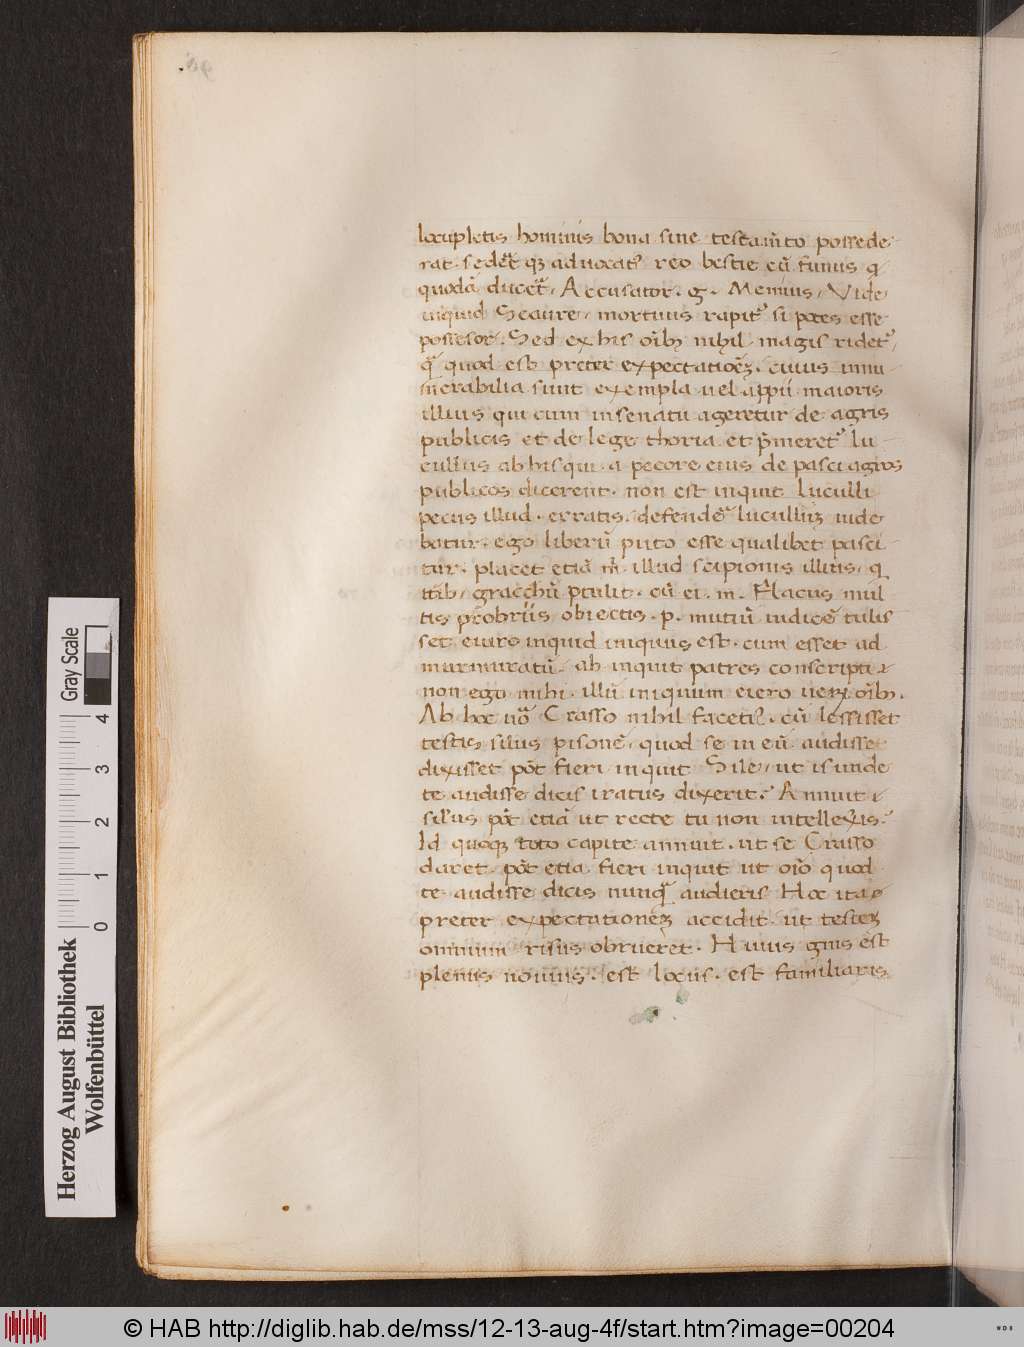 locupletis hominis bona sine testam̃to possede
rat. sedẽt qȝ aduocat᾽ reo bestie cũ funus q
quodã ducet᾽. Accusator. g. Memius, Vide
inquid Scaure, mortuus rapit᾽ si potes esse
possesor. Sed ex his oĩbȝ nihil magis ridet᾽,
q̃ quod est preter expectatiõeȝ. cuius innu
merabilia sunt exempla uel appii maioris
illius qui cum insenatu ageretur de agris
publicis et de lege thoria et p̃meret᾽ lu
cullus ab his qui a pecore eius depasci agros
publicos dicerent. non est inquit luculli
pecus illud. erratis. defendeʳ lucullũ uide
batur. ego liberũ puto esse qualibet pasci
tur. placet etiã m̃ illud scipionis illius, q
ttib, gracchũ ꝑtulit. cũ ei. m. Flacus mul
tis probriis obiectis. p. mutiũ iudicẽ tulis
set. eiuro inquid iniquus est. cum esset ad
murmuratũ. ab inquit patres conscripti
non ego mihi. illũ iniquum eiero ueɼ oĩbȝ.
Ab hoc uõ Crasso nihil faceti᾽. cũ lessisset
testis silus pisonẽ, quod se in eũ audisset
dixisset põt fieri inquit Sile, ut is unde
te audisse dicis iratus dixerit. Annuit
silus põt etiã ut recte tu non intellexis.
Id quoqȝ toto capite annuit. ut se Crasso
daret. põt etia fieri inquit ut oĩo quod
te audisse dicis nunq̃ audieris Hoc ita
preter expectationeȝ accidit. ut testeȝ
omnium risus obrueret. Huius gnis est
plenus nouius. est locus. est familiaris
Gray Scale
0 1 2 3 4
Herzog August Bibliothek
Wolfenbüttel
© HAB http://diglib.hab.de/mss/12-13-aug-4f/start.htm?image=00204